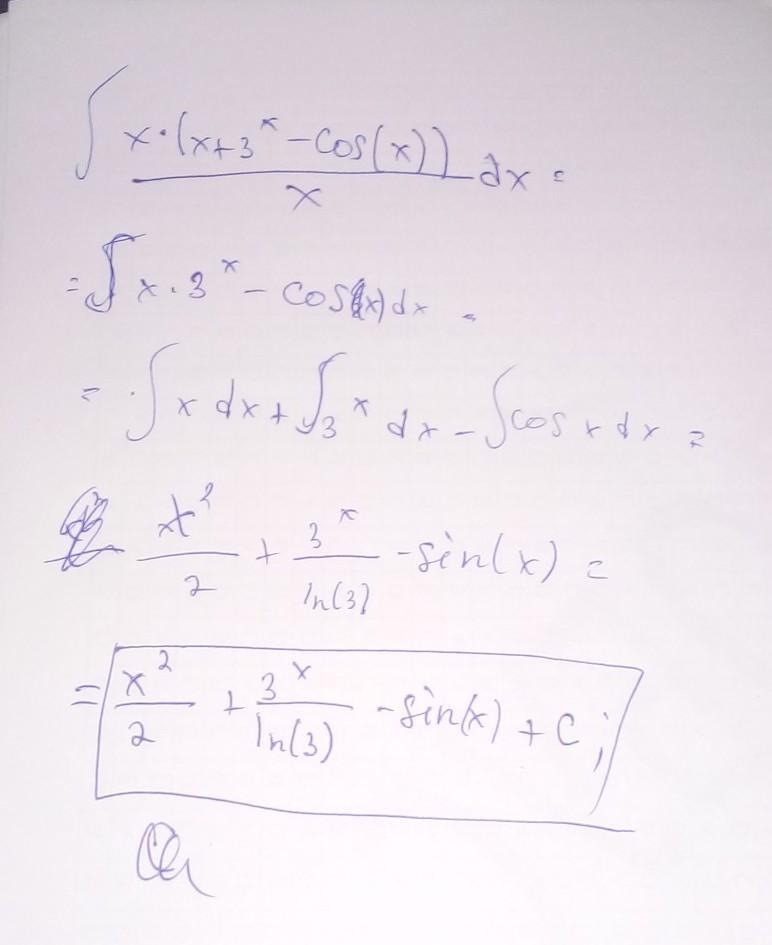 ∫ x·(x+3^x - cos(x)) / x dx =
= ∫ x · 3^x - cos(x) dx =
= ∫ x dx + ∫ 3^x dx - ∫ cos x dx =
x²/2 + 3^x/ln(3) - sin(x) =
= x²/2 + 3^x/ln(3) - sin(x) + C;